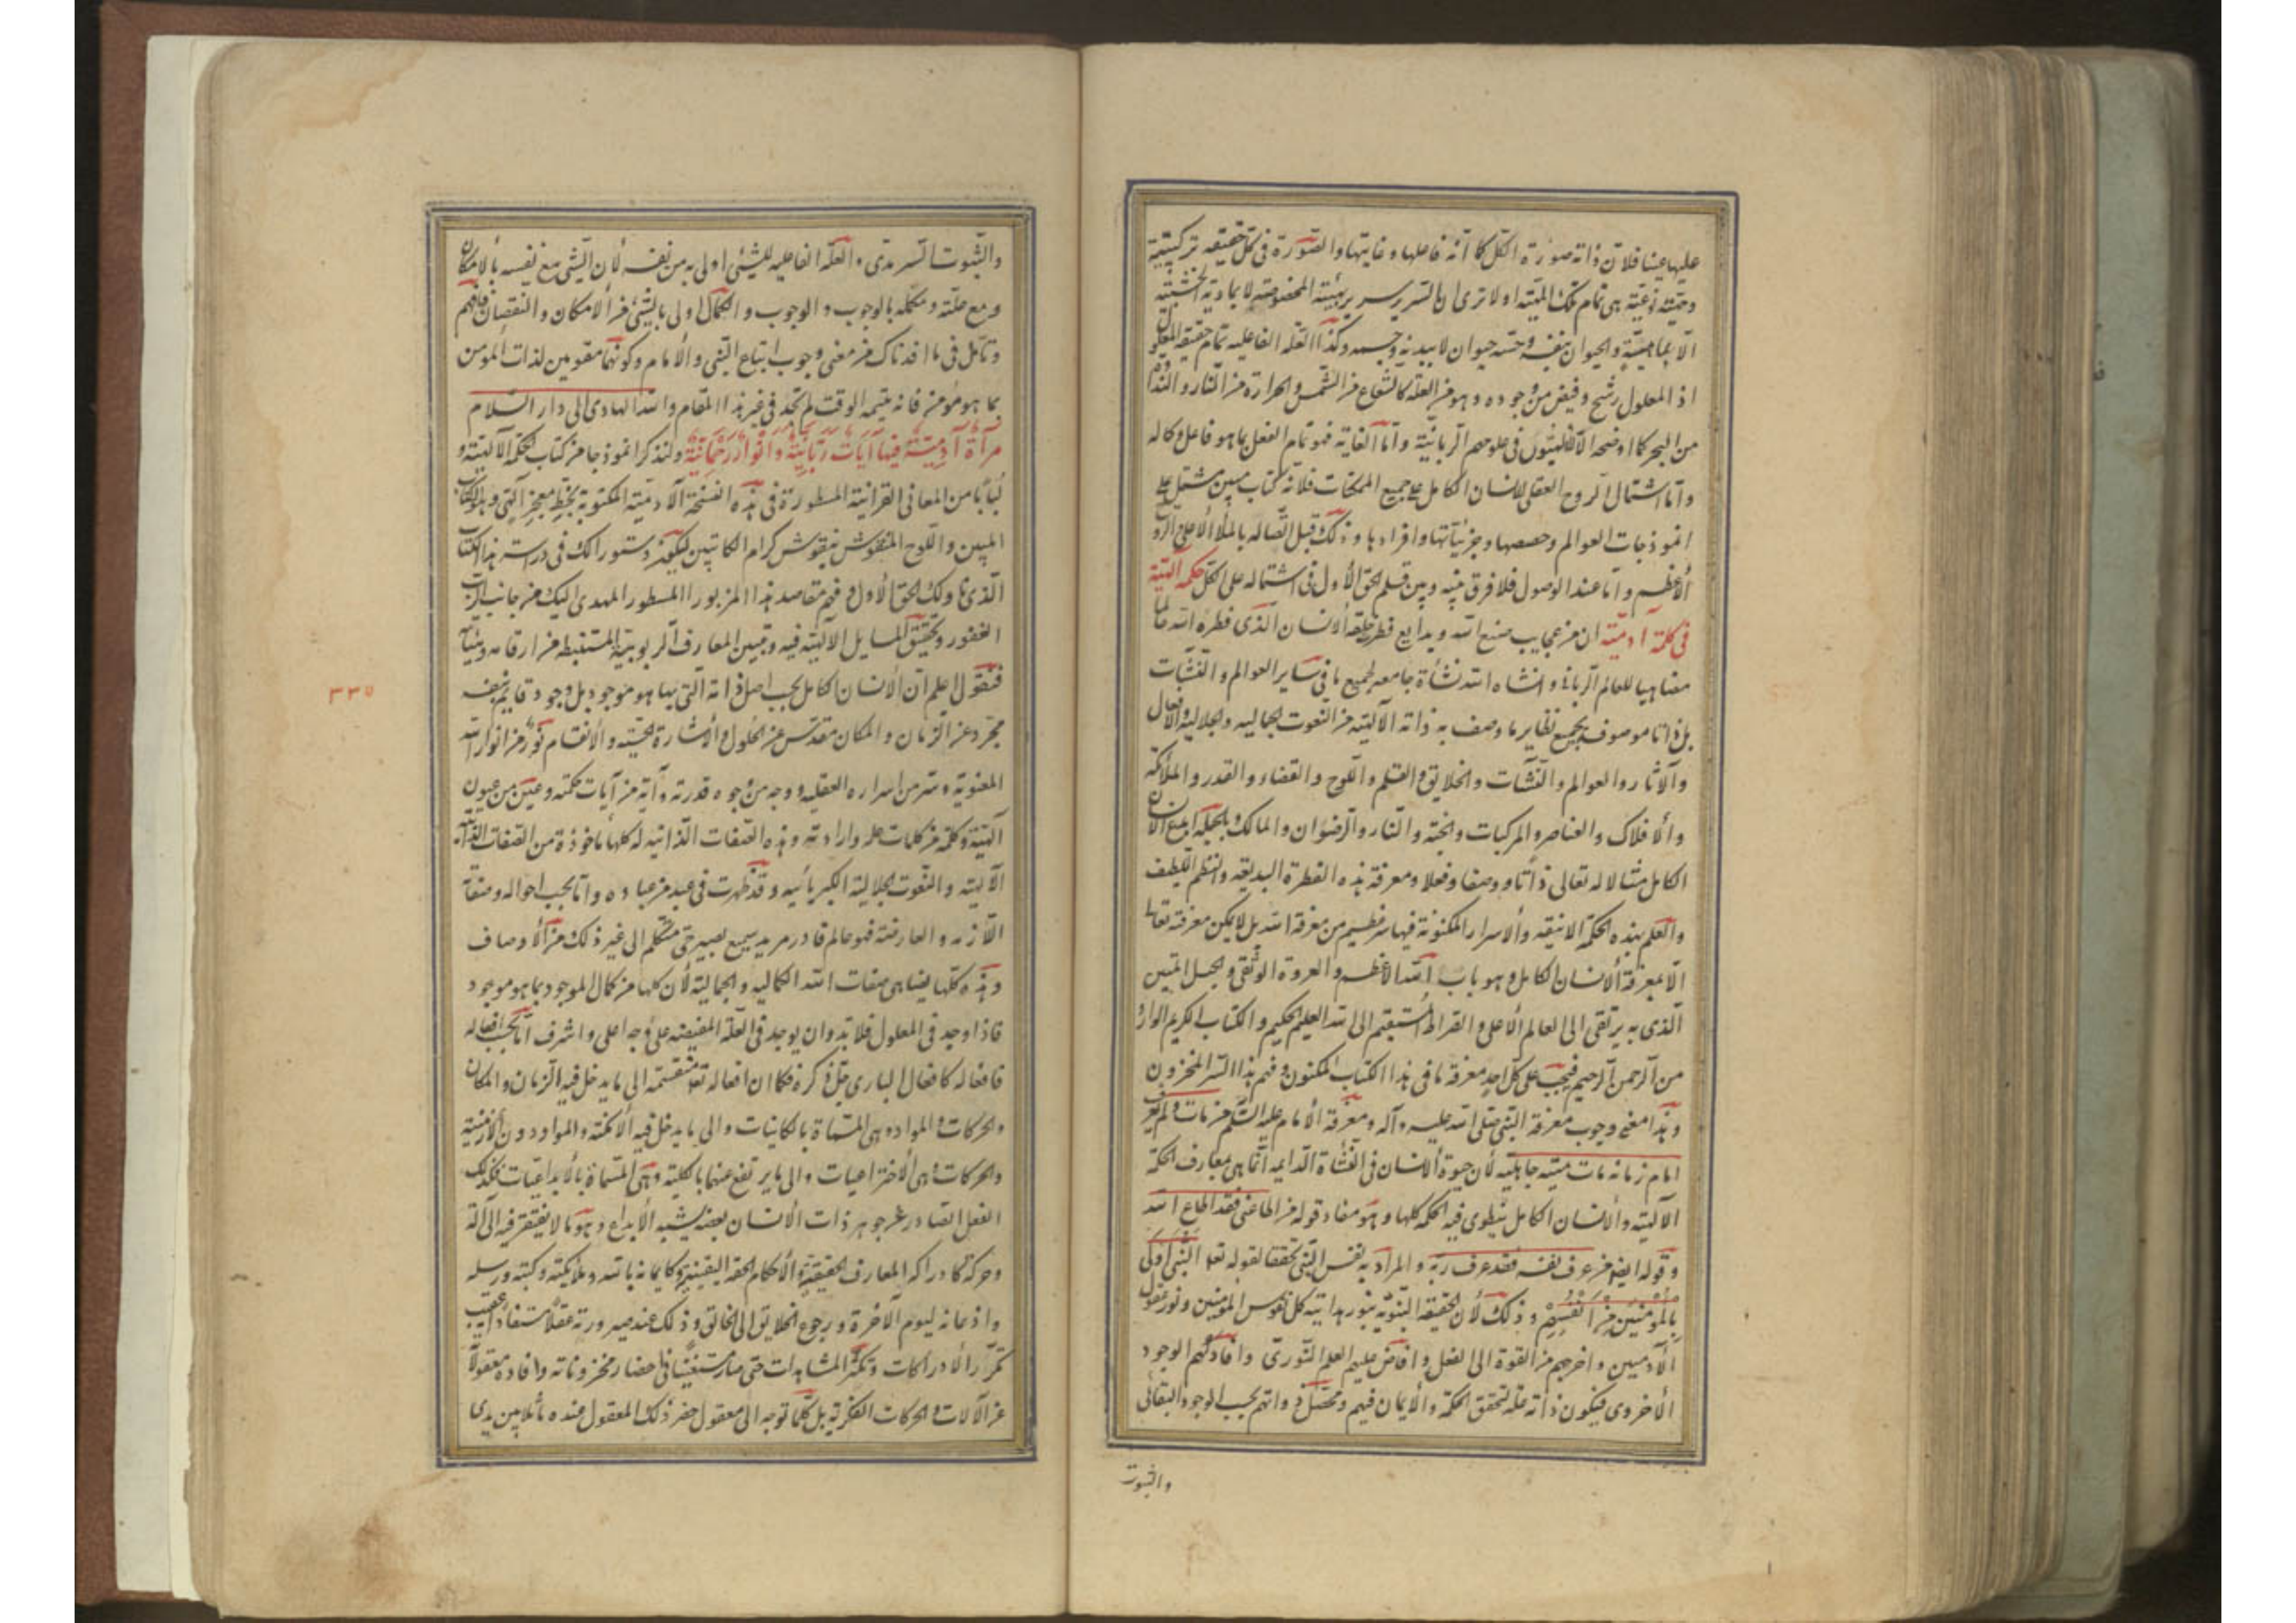 عليها عينا فلان ذاته صورة الكل كما انه فاعلها و غايتها و الصورة فى كل حقيقة تركيبية
وحيثية نوعيته هى تمام تلك المهيته او لا ترى ان السرير سرير بهيئته المخصوصة لا بمادته الخشبية
الا بماهيته و الحيوان بنفسه و حسه حيوان لا ببدنه و جسمه و كذا العلة الفاعلية تمام حقيقة المعلول
اذ المعلول رشح و فيض من وجوده و هو من العلة كالشعاع من الشمس و الحرارة من النار و الندا
من البحر كما اوضحه الالهيون فى علومهم الربانية و اما الغاية فهو تمام الفعل بما هو فاعل و كماله
و اما اشتمال الروح العقلى للانسان الكامل على جميع الممكنات فلانه كتاب مبين مشتمل على
انموذجات العوالم و حصصها و جزئياتها و افرادها و ذلك قبل اتصاله بالملأ الاعلى الروح
الاعظم و اما عند الوصول فلا فرق بينه و بين قلم الحق الاول فى اشتماله على الكل حكمة الهية
فى كلمة آدمية ان من عجايب صنع الله و بدايع فطرته خلقة الانسان الذى فطره الله عالما
مضاهيا للعالم الربانى و انشاه الله نشأة جامعة لجميع ما فى ساير العوالم و النشآت
بل ذاتا موصوف بجميع نظاير ما وصف به ذاته الالهية من النعوت الجمالية و الجلالية و الافعال
و الآثار و العوالم و النشآت و الخلايق و القلم و اللوح و القضاء و القدر و الملائكة
و الافلاك و العناصر و المركبات و الجنة و النار و الرضوان و المالك و بالجملة ابدع الانسان
الكامل مثالا له تعالى ذاتا و وصفا و فعلا و معرفة هذه الفطرة البديعة و النظم اللطيف
و العلم بهذه الحكمة الانيقة و الاسرار المكنونة فيها سر عظيم من معرفة الله بل لا يمكن معرفته تعالى
الا بمعرفة الانسان الكامل و هو باب الله الاعظم و العروة الوثقى و الحبل المتين
الذى به يرتقى الى العالم الاعلى و الصراط المستقيم الى الله العليم الحكيم و الكتاب الكريم الوارد
من الرحمن الرحيم فيجب على كل احد معرفة ما فى هذا الكتاب المكنون و فهم هذا السر المخزون
و هذا معنى وجوب معرفة النبى صلى الله عليه و آله و معرفة الامام عليه السلم من مات و لم يعرف
امام زمانه مات ميتة جاهلية لان حيوة الانسان فى النشاة الدايمة انما هى بمعارف الحكمة
الالهية و الانسان الكامل ينطوى فيه الحكمة كلها و هو مفاد قوله من اطاعنى فقد اطاع الله
و قوله ايضا من عرف نفسه فقد عرف ربه و المراد به نفس النبى تحققا لقوله تعا النبى اولى
بالمؤمنين من انفسهم و ذلك لان الحقيقة النبوية بنور هدايته كل نفوس المؤمنين و نور عقول
الآدميين و اخرجهم من القوة الى الفعل و افاض عليهم العلم النورى و افادكهم الوجود
الأخروى فيكون ذاته علة لتحقق الحكمة و الايمان فيهم و محصل ذواتهم بحسب الوجود البقائى
والثبوت
والثبوت السرمدى و العلة الفاعلية للشيئ اولى به من نفسه لان الشيئ مع نفسه بالامكان
و مع علته و مكمله بالوجوب و الوجوب و الكمال اولى بالشيئ من الامكان و النقصان فافهم
و تأمل فى ما افدناك من معنى وجوب اتباع النبى و الامام و كونهما مقومين لذات المؤمن
بما هو مؤمن فانه يتيمة الوقت لم تجد فى غير هذا المقام و الله الهادى الى دار السلام
مرآة آدمية فيها آيات ربانية و انوار رحمانية و لنذكر انموذجا من كتاب الحكمة الالهية و
لبابا من المعانى القرآنية المسطورة فى هذه النسخة الآدمية المكتوبة بخط معجز الهى و هو الكتاب
المبين و اللوح المنقوش بنقوش كرام الكاتبين ليكون دستورا لك فى دراسة هذا الكتاب
الذى ناولك الحق الاول و فهم مقاصد هذا المزبور المسطور المهدى اليك من جانب الرب
الغفور و تحقيق المسايل الالهية فيه و تبيين المعارف الربوبية المستنبطة من ارقامه و هيئاته
فنقول اعلم ان الانسان الكامل بحسب اصل ذاته التى بها هو موجود بل وجود قايم بنفسه
مجرد عن الزمان و المكان مقدس عن الحلول و الاشارة الحسية و الانقسام نور من انوار الله
المعنوية و سر من اسراره العقلية و وجه من وجوه قدرته و آية من آيات حكمته و عين من عيون
الهيته و كلمة من كلمات علمه و ارادته و هذه الصفات الذاتية له كلها ماخوذة من الصفات الذاتية
الالهية و النعوت الجلالية الكبريائية و قد ظهرت فى عبد من عباده و اما بحسب احواله و صفاته
اللازمة و العارضة فهو عالم قادر مريد سميع بصير حى متكلم الى غير ذلك من الاوصاف
و هذه كلها يضاهى صفات الله الكمالية و الجمالية لان كلها من كمال الموجود بما هو موجود
فاذا وجد فى المعلول فلا بد و ان يوجد فى العلة المفيضة على وجه اعلى و اشرف اما بحسب افعاله
فافعاله كافعال البارى جل ذكره فكما ان افعاله تعا منقسمة الى ما يدخل فيه الزمان و المكان
و الحركات و المواد و هى المسماة بالكاينات و الى ما يدخل فيه الامكنة و المواد دون الازمنة
و الحركات و هى الاختراعيات و الى ما يرتفع عنهما بالكلية و هى المسماة بالابداعيات فكذلك
الفعل الصادر عن جوهر ذات الانسان بعضه يشبه الابداع و هو ما لا يفتقر فيه الى آلة
و حركة كادراكه المعارف الحقيقية و الاحكام الحقة اليقينية و كايمانه بالله و ملايكته و كتبه و رسله
و اذعانه ليوم الآخرة و رجوع الخلايق الى الخالق و ذلك عند صيرورته عقلا مستفادا عقيب
تكرر الادراكات و تكثر المشاهدات حتى صار مستغنيا فى احضار مخزوناته و افاده معقولاته
عن الآلات و الحركات الفكرية بل كلما توجه الى معقول حضر ذلك المعقول عنده ماثلا بين يدى
٣٣٥